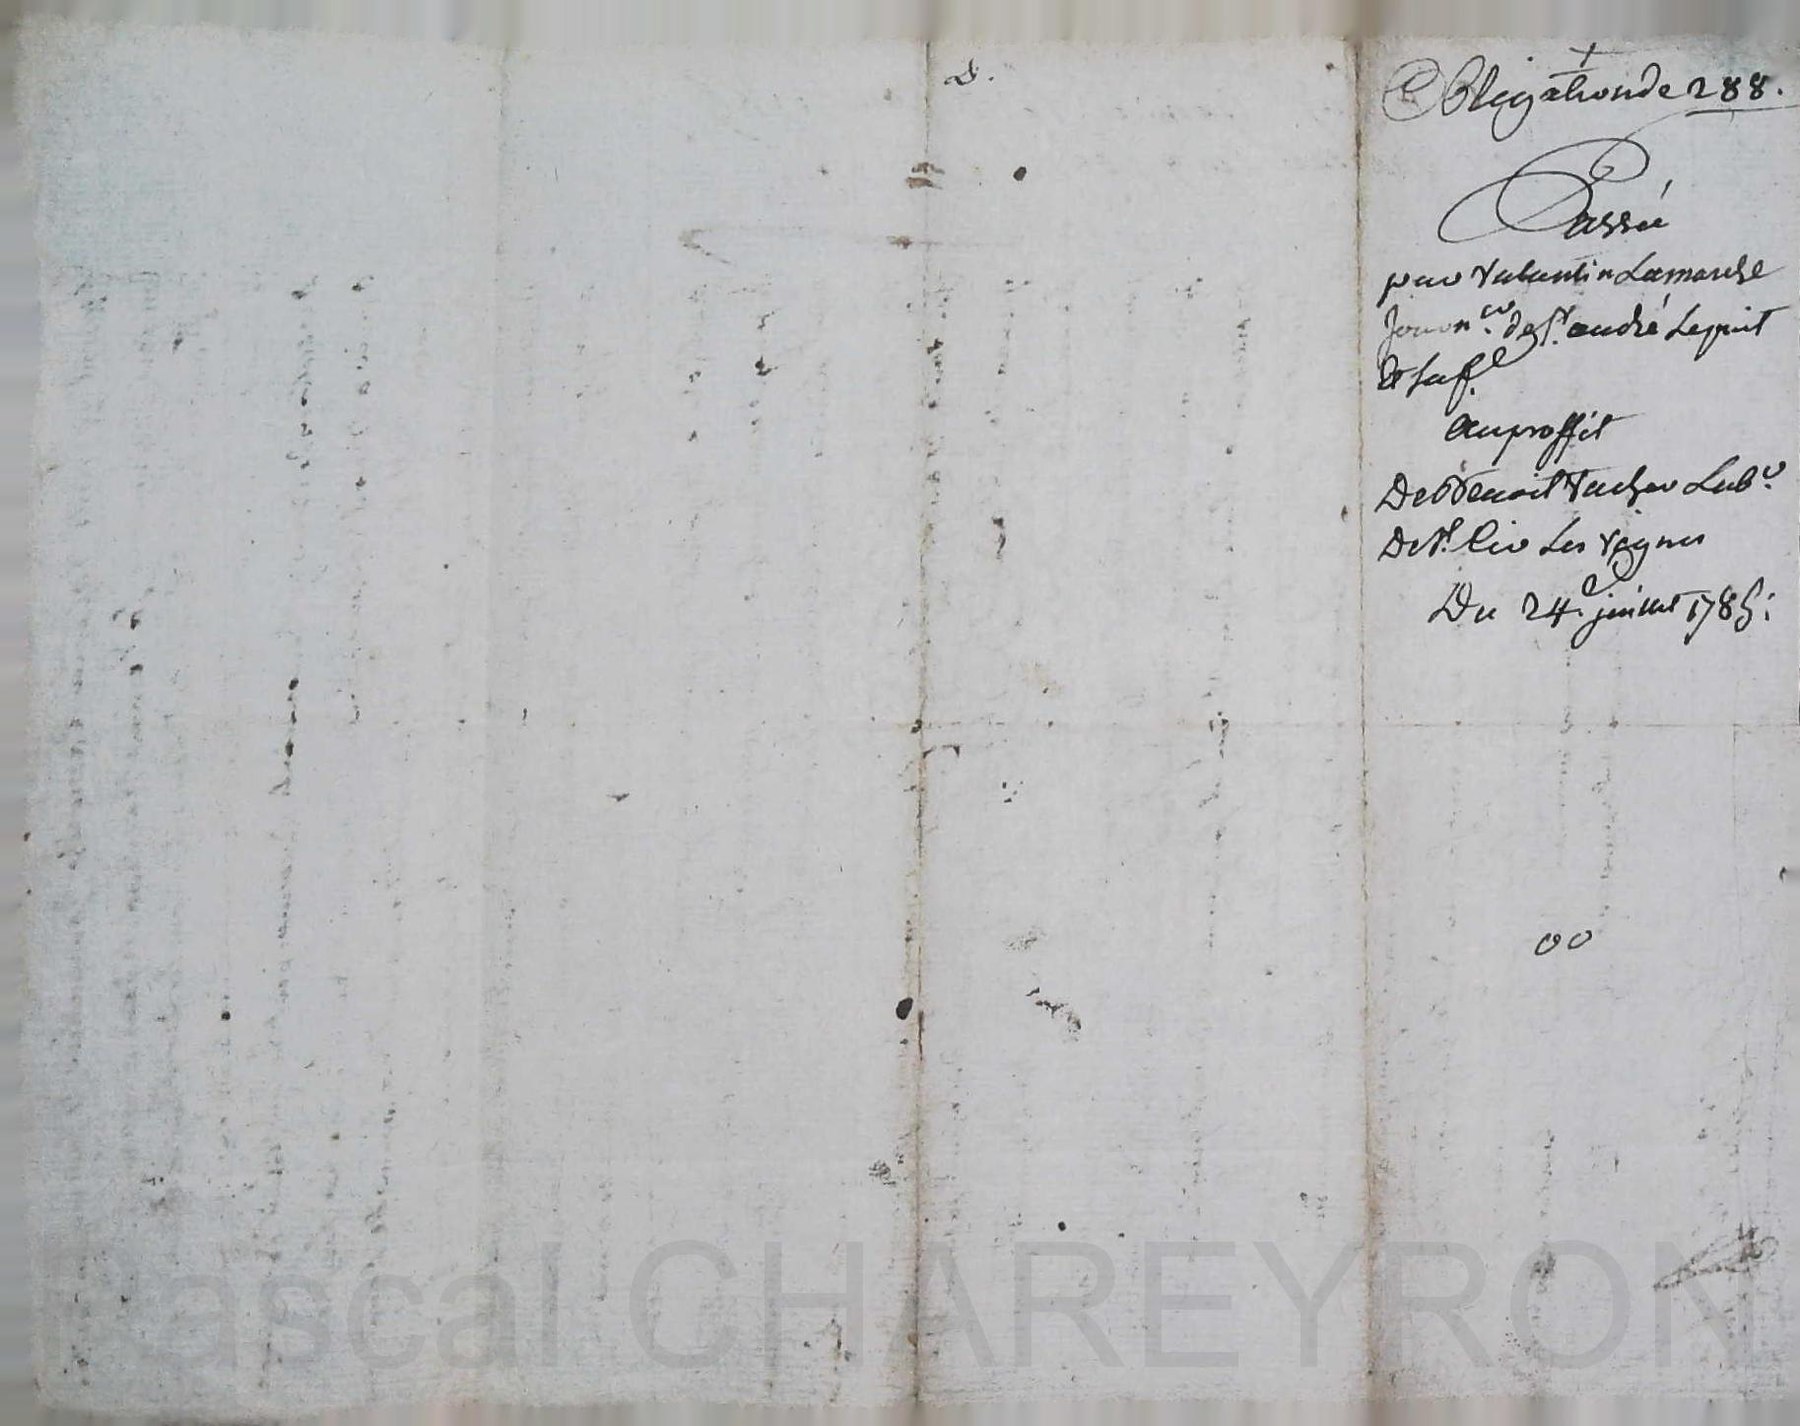 D.
Obligation de 288.
Passée
par Valantin Lamarche
Journ.er de St. andré Lepuit
Et Sa f.e
au proffit
De Benoit Vacher Lab.r
De St. Cir Les Vignes
Du 24.e juillet 1785:
00
Pascal CHAREYRON